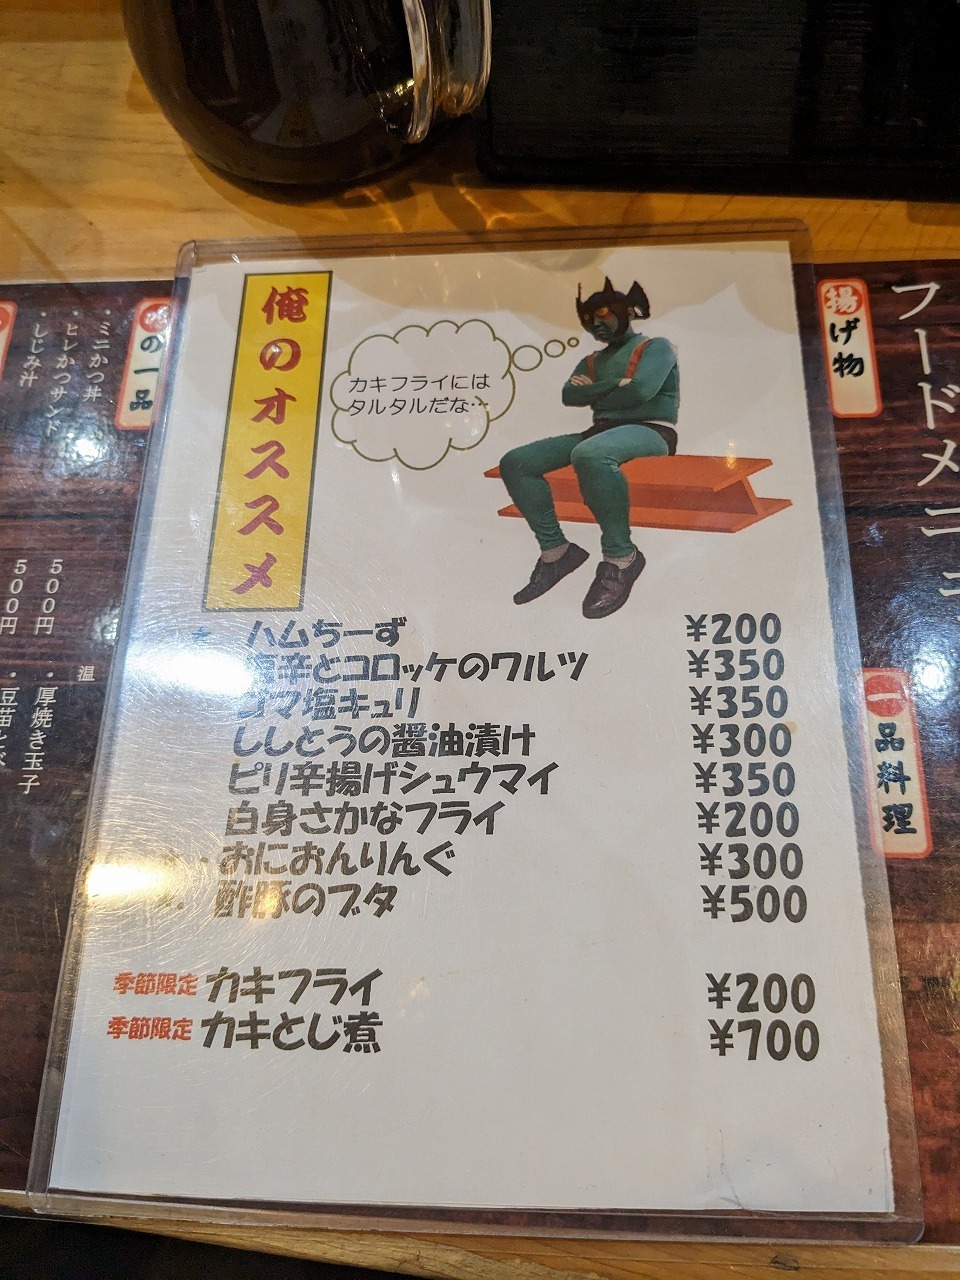 俺のオススメ
カキフライには
タルタルだな…
ハムちーず ¥200
塩辛とコロッケのワルツ ¥350
ゴマ塩キュリ ¥350
ししとうの醤油漬け ¥300
ピリ辛揚げシュウマイ ¥350
白身さかなフライ ¥200
おにおんりんぐ ¥300
酢豚のブタ ¥500
季節限定 カキフライ ¥200
季節限定 カキとじ煮 ¥700
フードメニュ
揚げ物
一品料理
の一品
・ミニかつ丼
・ヒレかつサンド
・しじみ汁
500円
500円
温
・厚焼き玉子
・豆苗とベ